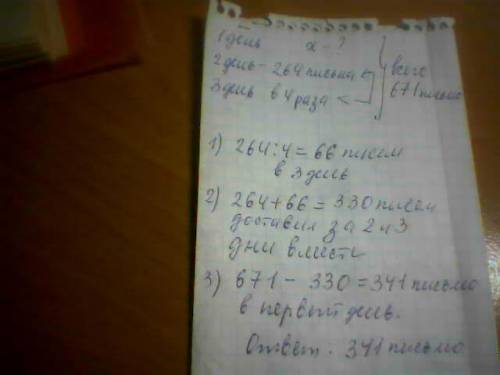 1 день х - ?
2 день - 264 письма всего
3 день в 4 раза < 671 письмо
1) 264 : 4 = 66 писем
в 3 день
2) 264 + 66 = 330 писем
доставил за 2 и 3
дни вместе
3) 671 - 330 = 341 письмо
в первый день.
Ответ. 341 письмо